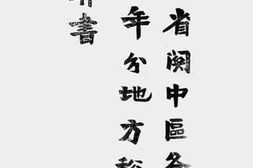 省閬中區各
年分地方稅
書